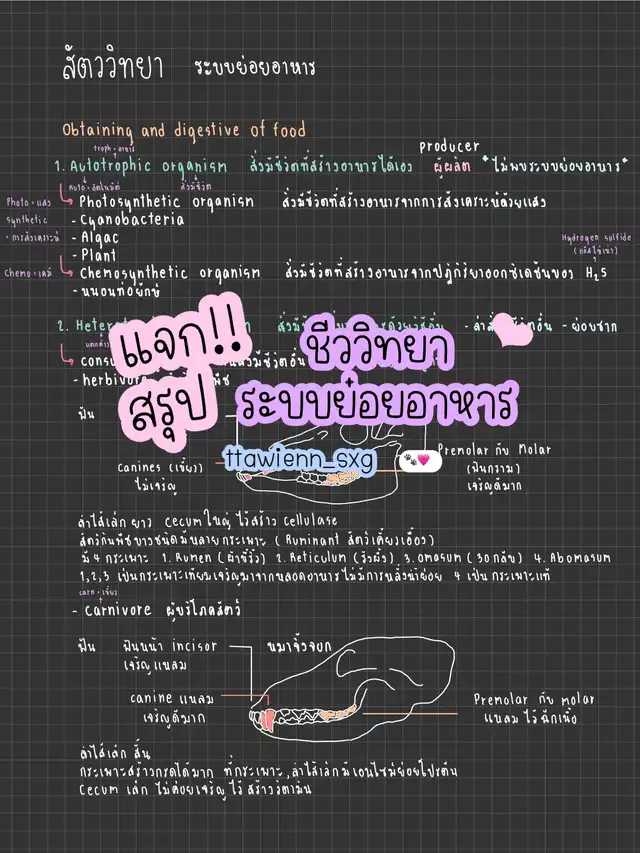 สัตววิทยา ระบบย่อยอาหาร
Obtaining and digestive of food
troph = อาหาร
producer
1. Autotrophic organism สิ่งมีชีวิตที่สร้างอาหารได้เอง ผู้ผลิต *ไม่พบระบบย่อยอาหาร*
Auto = อัตโนมัติ สิ่งมีชีวิต
Photo = แสง
Photosynthetic organism สิ่งมีชีวิตที่สร้างอาหารจากการสังเคราะห์ด้วยแสง
synthetic
- Cyanobacteria
= การสังเคราะห์
- Algae
Hydrogen sulfide
- Plant
(แก๊สไข่เน่า)
Chemo = เคมี
Chemosynthetic organism สิ่งมีชีวิตที่สร้างอาหารจากปฏิกิริยาออกซิเดชันของ H2S
- หนอนท่อยักษ์
2. Heter สิ่งมี - ล่าสิ่งมีชีวิตอื่น - ย่อยซาก
แจก!!
สรุป
ชีววิทยา
ระบบย่อยอาหาร
ttawienn_sxg
cons
- herbivore
ฟัน
canines (เขี้ยว)
ไม่เจริญ
Premolar กับ Molar
(ฟันกราม)
เจริญดีมาก
ลำไส้เล็ก ยาว cecum ใหญ่ ไว้สร้าง cellulase
สัตว์กินพืชบางชนิดมีหลายกระเพาะ (Ruminant สัตว์เคี้ยวเอื้อง)
มี 4 กระเพาะ 1. Rumen (ผ้าขี้ริ้ว) 2. Reticulum (รังผึ้ง) 3. omasum (30กลีบ) 4. Abomasum
1,2,3 เป็นกระเพาะเทียมเจริญมาจากหลอดอาหารไม่มีการหลั่งน้ำย่อย 4 เป็นกระเพาะแท้
carn = เนื้อ
- carnivore ผู้บริโภคสัตว์
ฟัน ฟันหน้า incisor หมาจิ้งจอก
เจริญแหลม
canine แหลม
เจริญดีมาก
Premolar กับ molar
แหลม ไว้ฉีกเนื้อ
ลำไส้เล็ก สั้น
กระเพาะสร้างกรดได้มาก ที่กระเพาะ,ลำไส้เล็กมีเอนไซม์ย่อยโปรตีน
cecum เล็ก ไม่ค่อยเจริญ ไว้สร้างวิตามิน